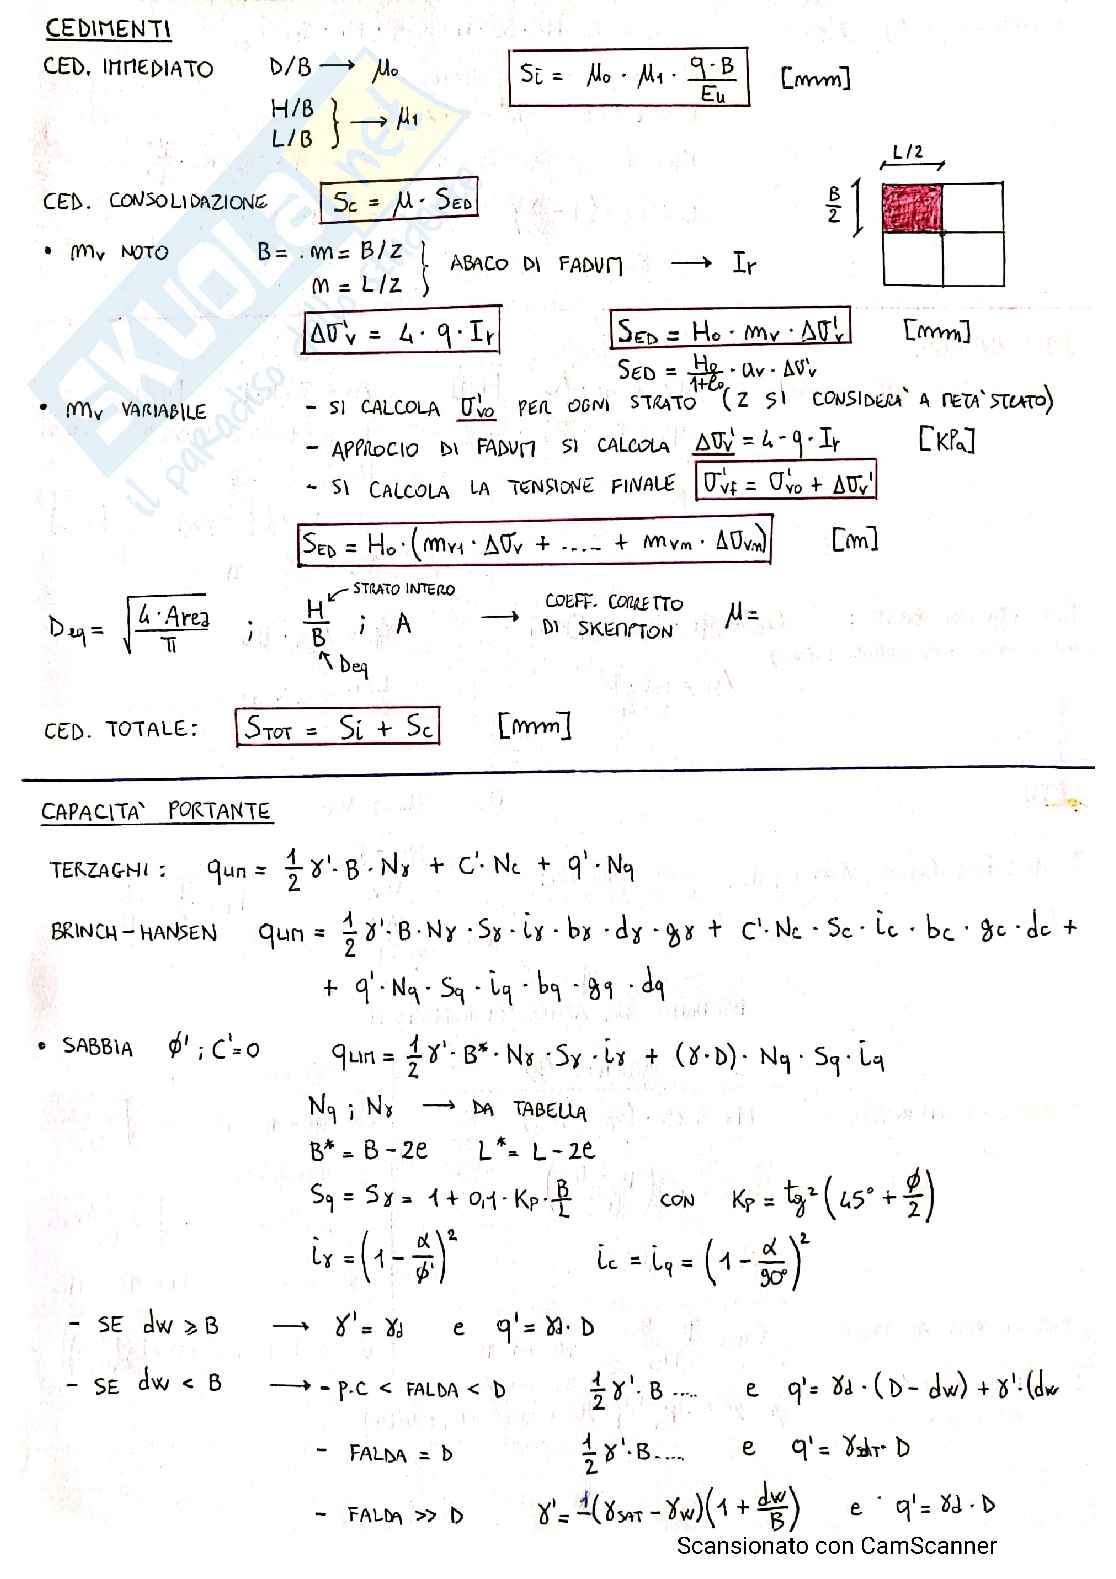 CEDIMENTI
CED. IMMEDIATO D/B → μ₀ Si = μ₀ · μ₁ · q·B/Eu [mm]
H/B
L/B } → μ₁
L/2
B/2
CED. CONSOLIDAZIONE Sc = μ · SED
• mv NOTO B= . m = B/Z
m = L/Z } ABACO DI FADUM → Ir
Δσ'v = 4 · q · Ir SED = H₀ · mv · Δσ'v [mm]
SED = H₀/1+e₀ · av · Δσ'v
• mv VARIABILE - SI CALCOLA σ'v0 PER OGNI STRATO (Z SI CONSIDERA A METÀ STRATO)
- APPROCIO DI FADUM SI CALCOLA Δσ'v = 4 · q · Ir [KPa]
- SI CALCOLA LA TENSIONE FINALE σ'vf = σ'v0 + Δσv'
SED = H₀ · (mv1 · Δσv + ..... + mvm · Δσvm) [m]
Deq = √(4 · Area/π) ; H/B ; A → COEFF. CORRETTO DI SKEMPTON μ =
STRATO INTERO
Deq
CED. TOTALE: STOT = Si + Sc [mm]
CAPACITA' PORTANTE
TERZAGHI: qLIM = 1/2 γ' · B · Nγ + C' · Nc + q' · Nq
BRINCH-HANSEN qLIM = 1/2 γ' · B · Nγ · Sγ · iγ · bγ · dγ · gγ + C' · Nc · Sc · ic · bc · gc · dc +
+ q' · Nq · Sq · iq · bq · gq · dq
• SABBIA φ' ; C'=0 qLIM = 1/2 γ' · B* · Nγ · Sγ · iγ + (γ · D) · Nq · Sq · iq
Nq ; Nγ → DA TABELLA
B* = B - 2e L* = L - 2e
Sq = Sγ = 1 + 0,1 · Kp · B/L CON Kp = tg² (45° + φ/2)
iγ = (1 - α/φ')² ic = iq = (1 - α/90°)²
- SE dw ≥ B → γ' = γd e q' = γd · D
- SE dw < B → - P.C < FALDA < D 1/2 γ' · B .... e q' = γd · (D - dw) + γ' · (dw
- FALDA = D 1/2 γ' · B ..... e q' = γSAT · D
- FALDA >> D γ' = 1 (γSAT - γw)(1 + dw/B) e q' = γd · D
Scansionato con CamScanner
SKUOLA.net
il paradiso dello studente